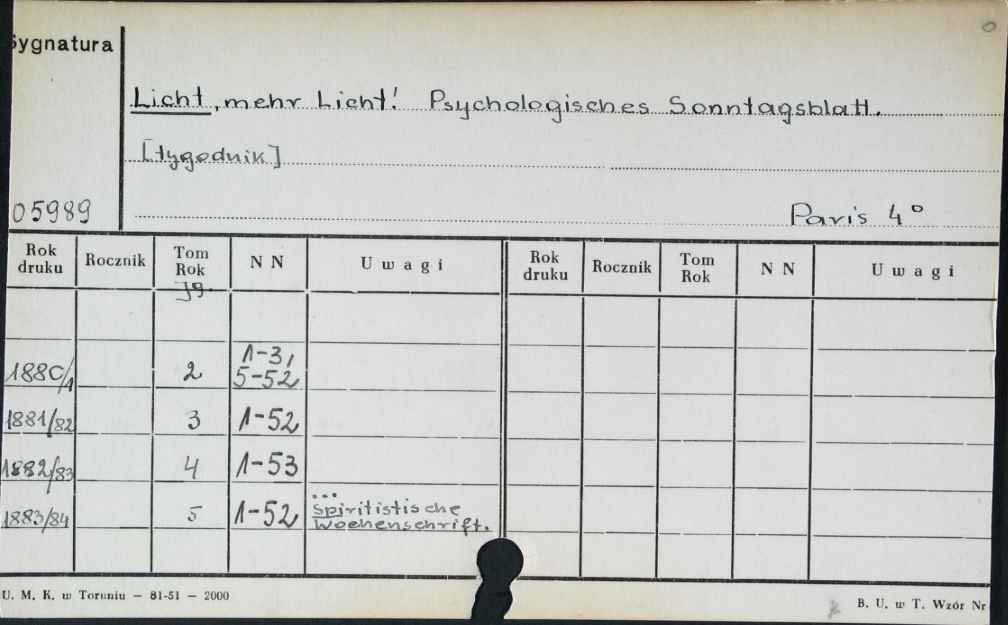 Sygnatura
Licht, mehr Licht! Psychologisches Sonntagsblatt.
[tygodnik]
05989
Paris 4°
Rok druku Rocznik Tom Rok NN Uwagi Rok druku Rocznik Tom Rok NN Uwagi
Jg.
1880/1 2 1-3, 5-52
1881/82 3 1-52
1882/83 4 1-53
1883/84 5 1-52 ... Spiritistische Wochenschrift.
U. M. K. w Toruniu — 81-51 — 2000
B. U. w T. Wzór Nr